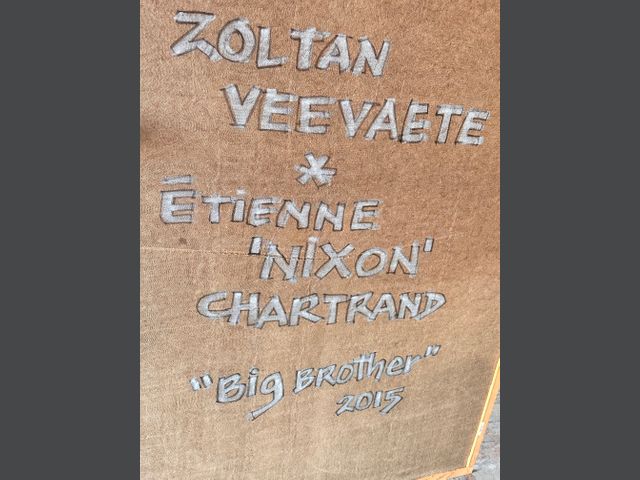 ZOLTAN
VEEVAETE
*
ÉTIENNE
'NIXON'
CHARTRAND
"Big BROTher"
2015